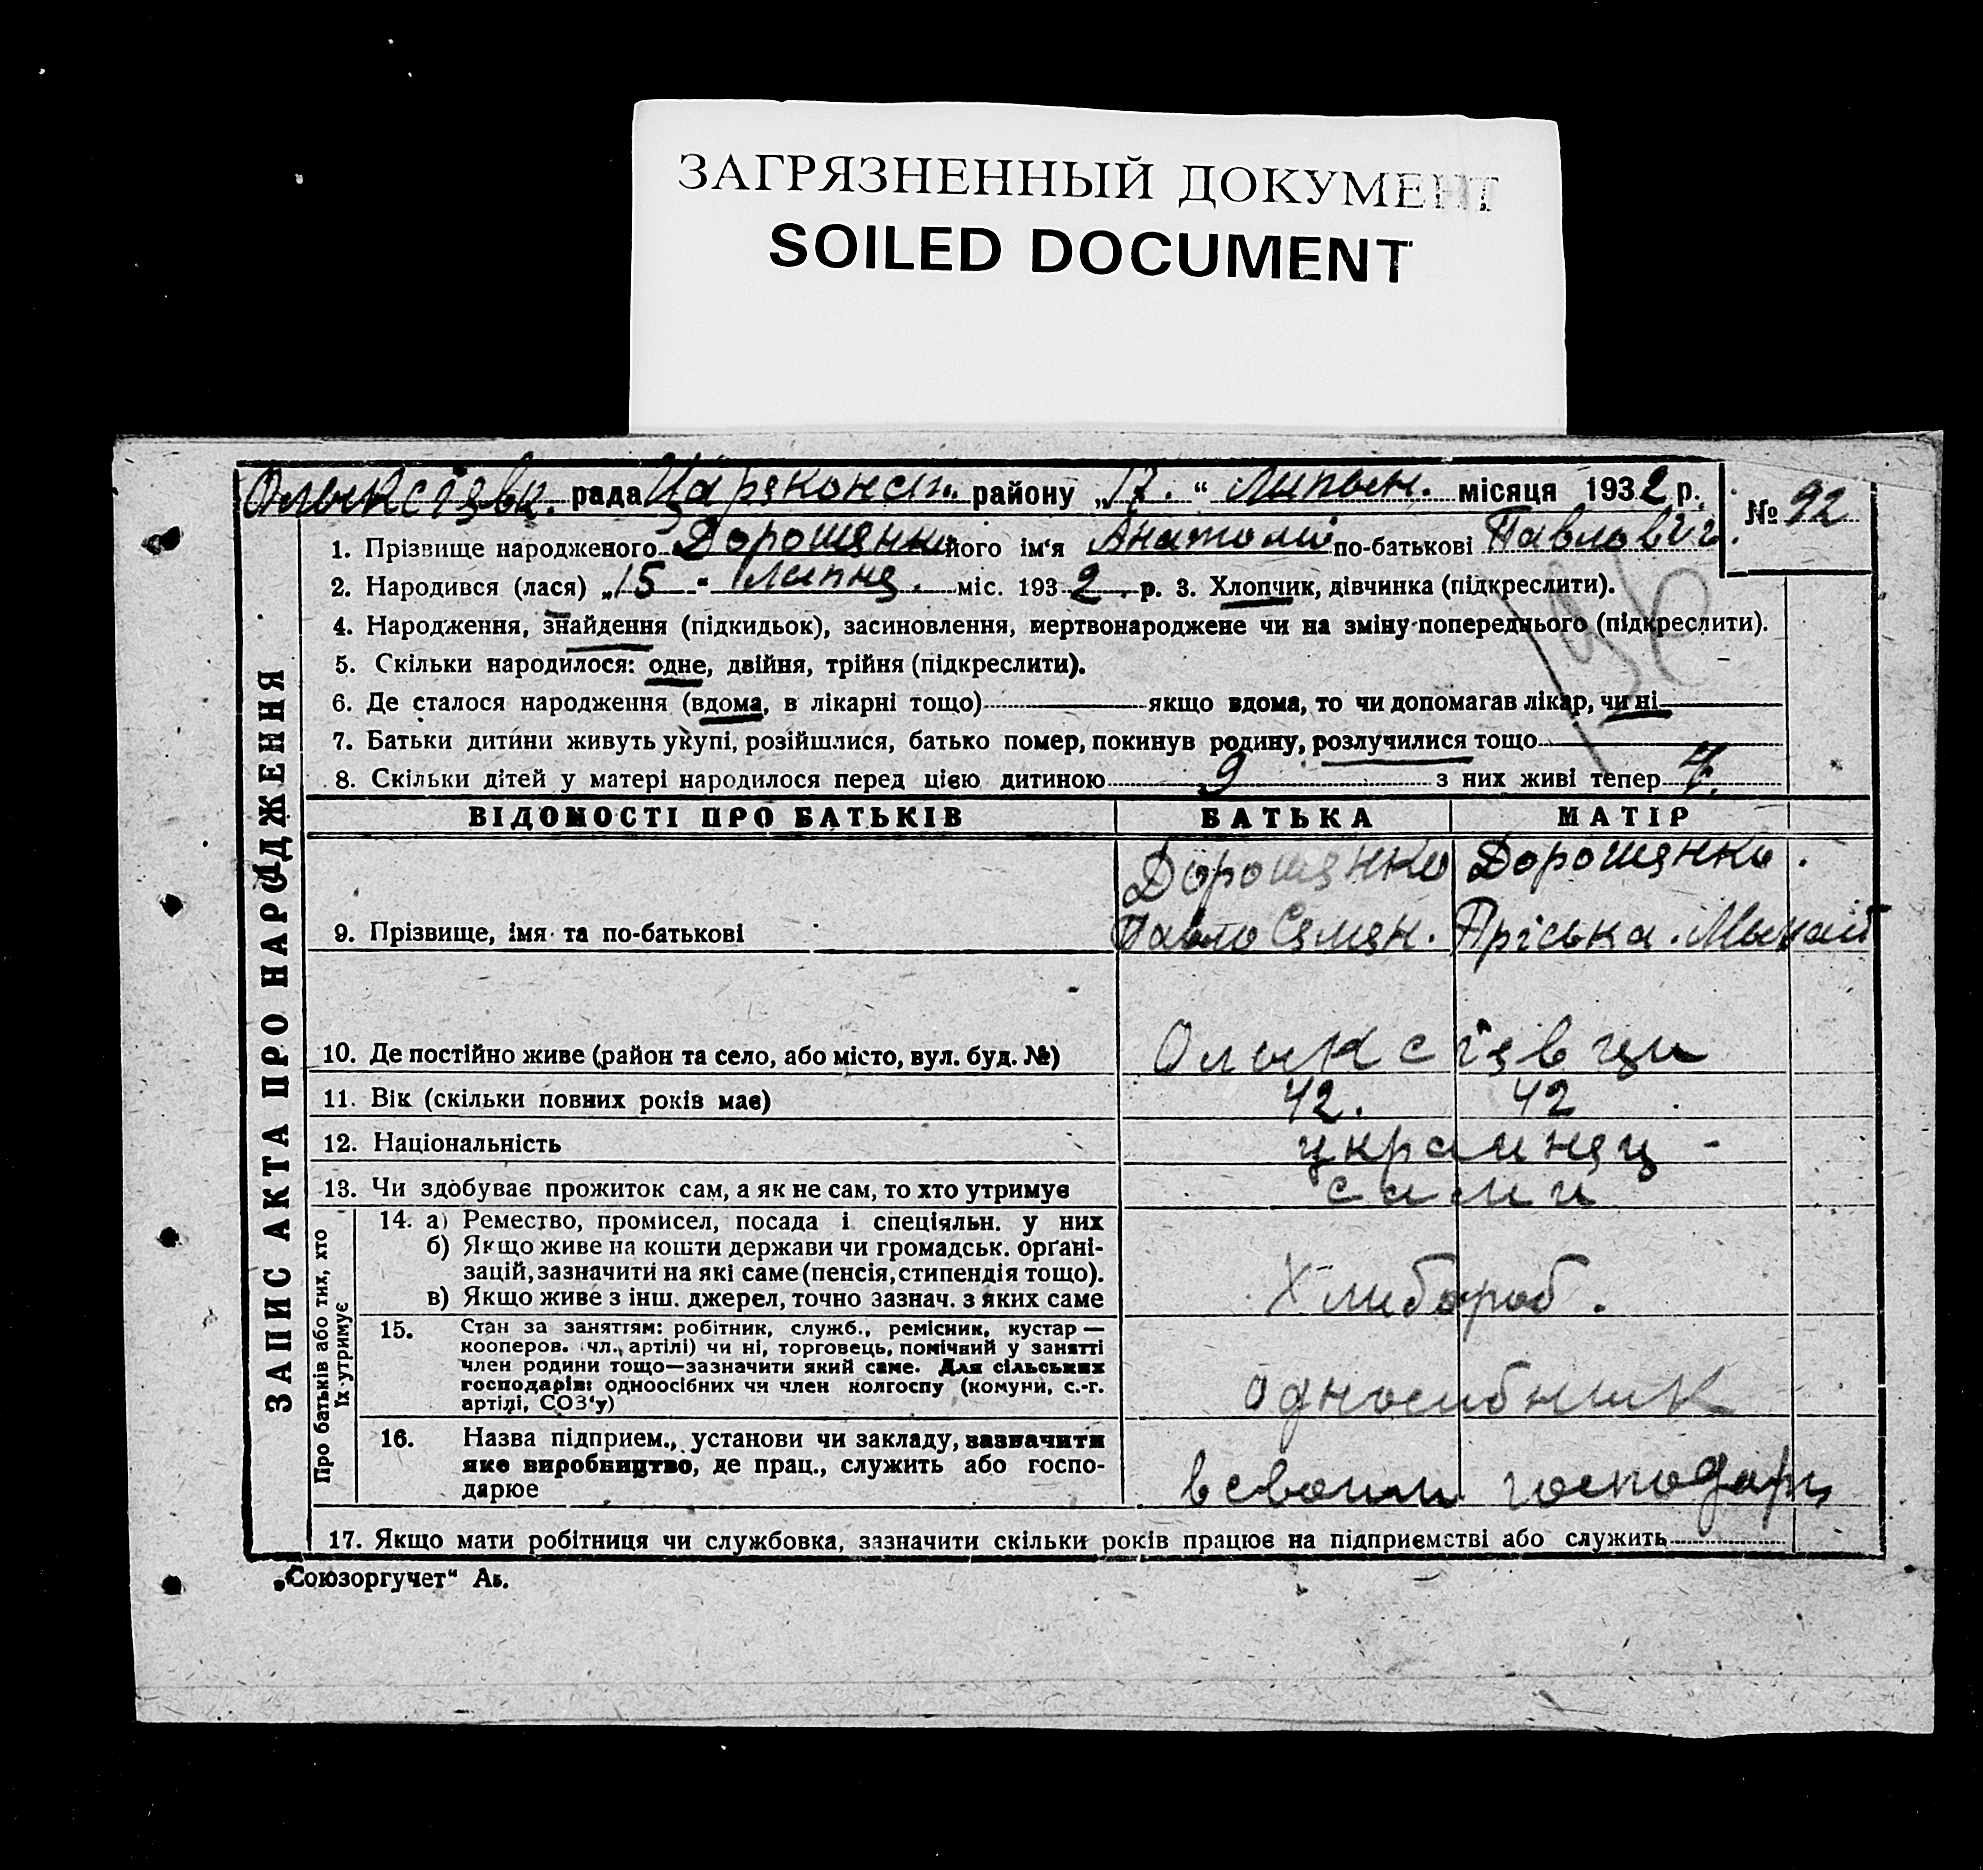 ЗАГРЯЗНЕННЫЙ ДОКУМЕНТ
SOILED DOCUMENT
рада Царекон район у „17.“ Липьен. місяця 1932 р. № 92
1. Прізвище народженого Дорошенко його ім‘я Анатолій по-батькові Павлович
2. Народився (лася) „15“ липня. міс. 1932 р. 3. Хлопчик, дівчинка (підкреслити).
4. Народження, знайдення (підкидьок), засиновлення, мертвонароджене чи на зміну попереднього (підкреслити).
5. Скільки народилося: одне, двійня, трійня (підкреслити).
6. Де сталося народження (вдома, в лікарні тощо) якщо вдома, то чи допомагав лікар, чи ні
7. Батьки дитини живуть укупі, розійшлися, батько помер, покинув родину, розлучилися тощо
8. Скільки дітей у матері народилося перед цією дитиною 9 з них живі тепер 7.
ЗАПИС АКТА ПРО НАРОДЖЕННЯ
ВІДОМОСТІ ПРО БАТЬКІВ БАТЬКА МАТІР
Дорошенко Дорошенко.
9. Прізвище, імя та по-батькові Павло Семен. Пріська.
10. Де постійно живе (район та село, або місто, вул. буд. №) Олыксієвци
11. Вік (скільки повних років має) 42. 42
12. Національність украинец -
13. Чи здобуває прожиток сам, а як не сам, то хто утримує сами
Про батьків або тих, хто їх утримує
14. а) Ремество, промисел, посада і спеціяльн. у них
б) Якщо живе на кошти держави чи громадськ. органі-
зацій, зазначити на які саме (пенсія, стипендія тощо). Хлибороб.
в) Якщо живе з інш. джерел, точно зазнач. з яких саме
15. Стан за заняттям: робітник, служб., ремісник, кустар —
кооперов. чл., артілі) чи ні, торговець, помічний у занятті
член родини тощо—зазначити який саме. Для сільських
господарів: одноосібних чи член колгоспу (комуни, с.-г. односибник
артілі, СОЗ‘у)
16. Назва підприєм., установи чи закладу, зазначити
яке виробництво, де прац., служить або госпо-
дарює в своим господарц
17. Якщо мати робітниця чи службовка, зазначити скільки років працює на підприємстві або служить
„Союзоргучет“ Аб.